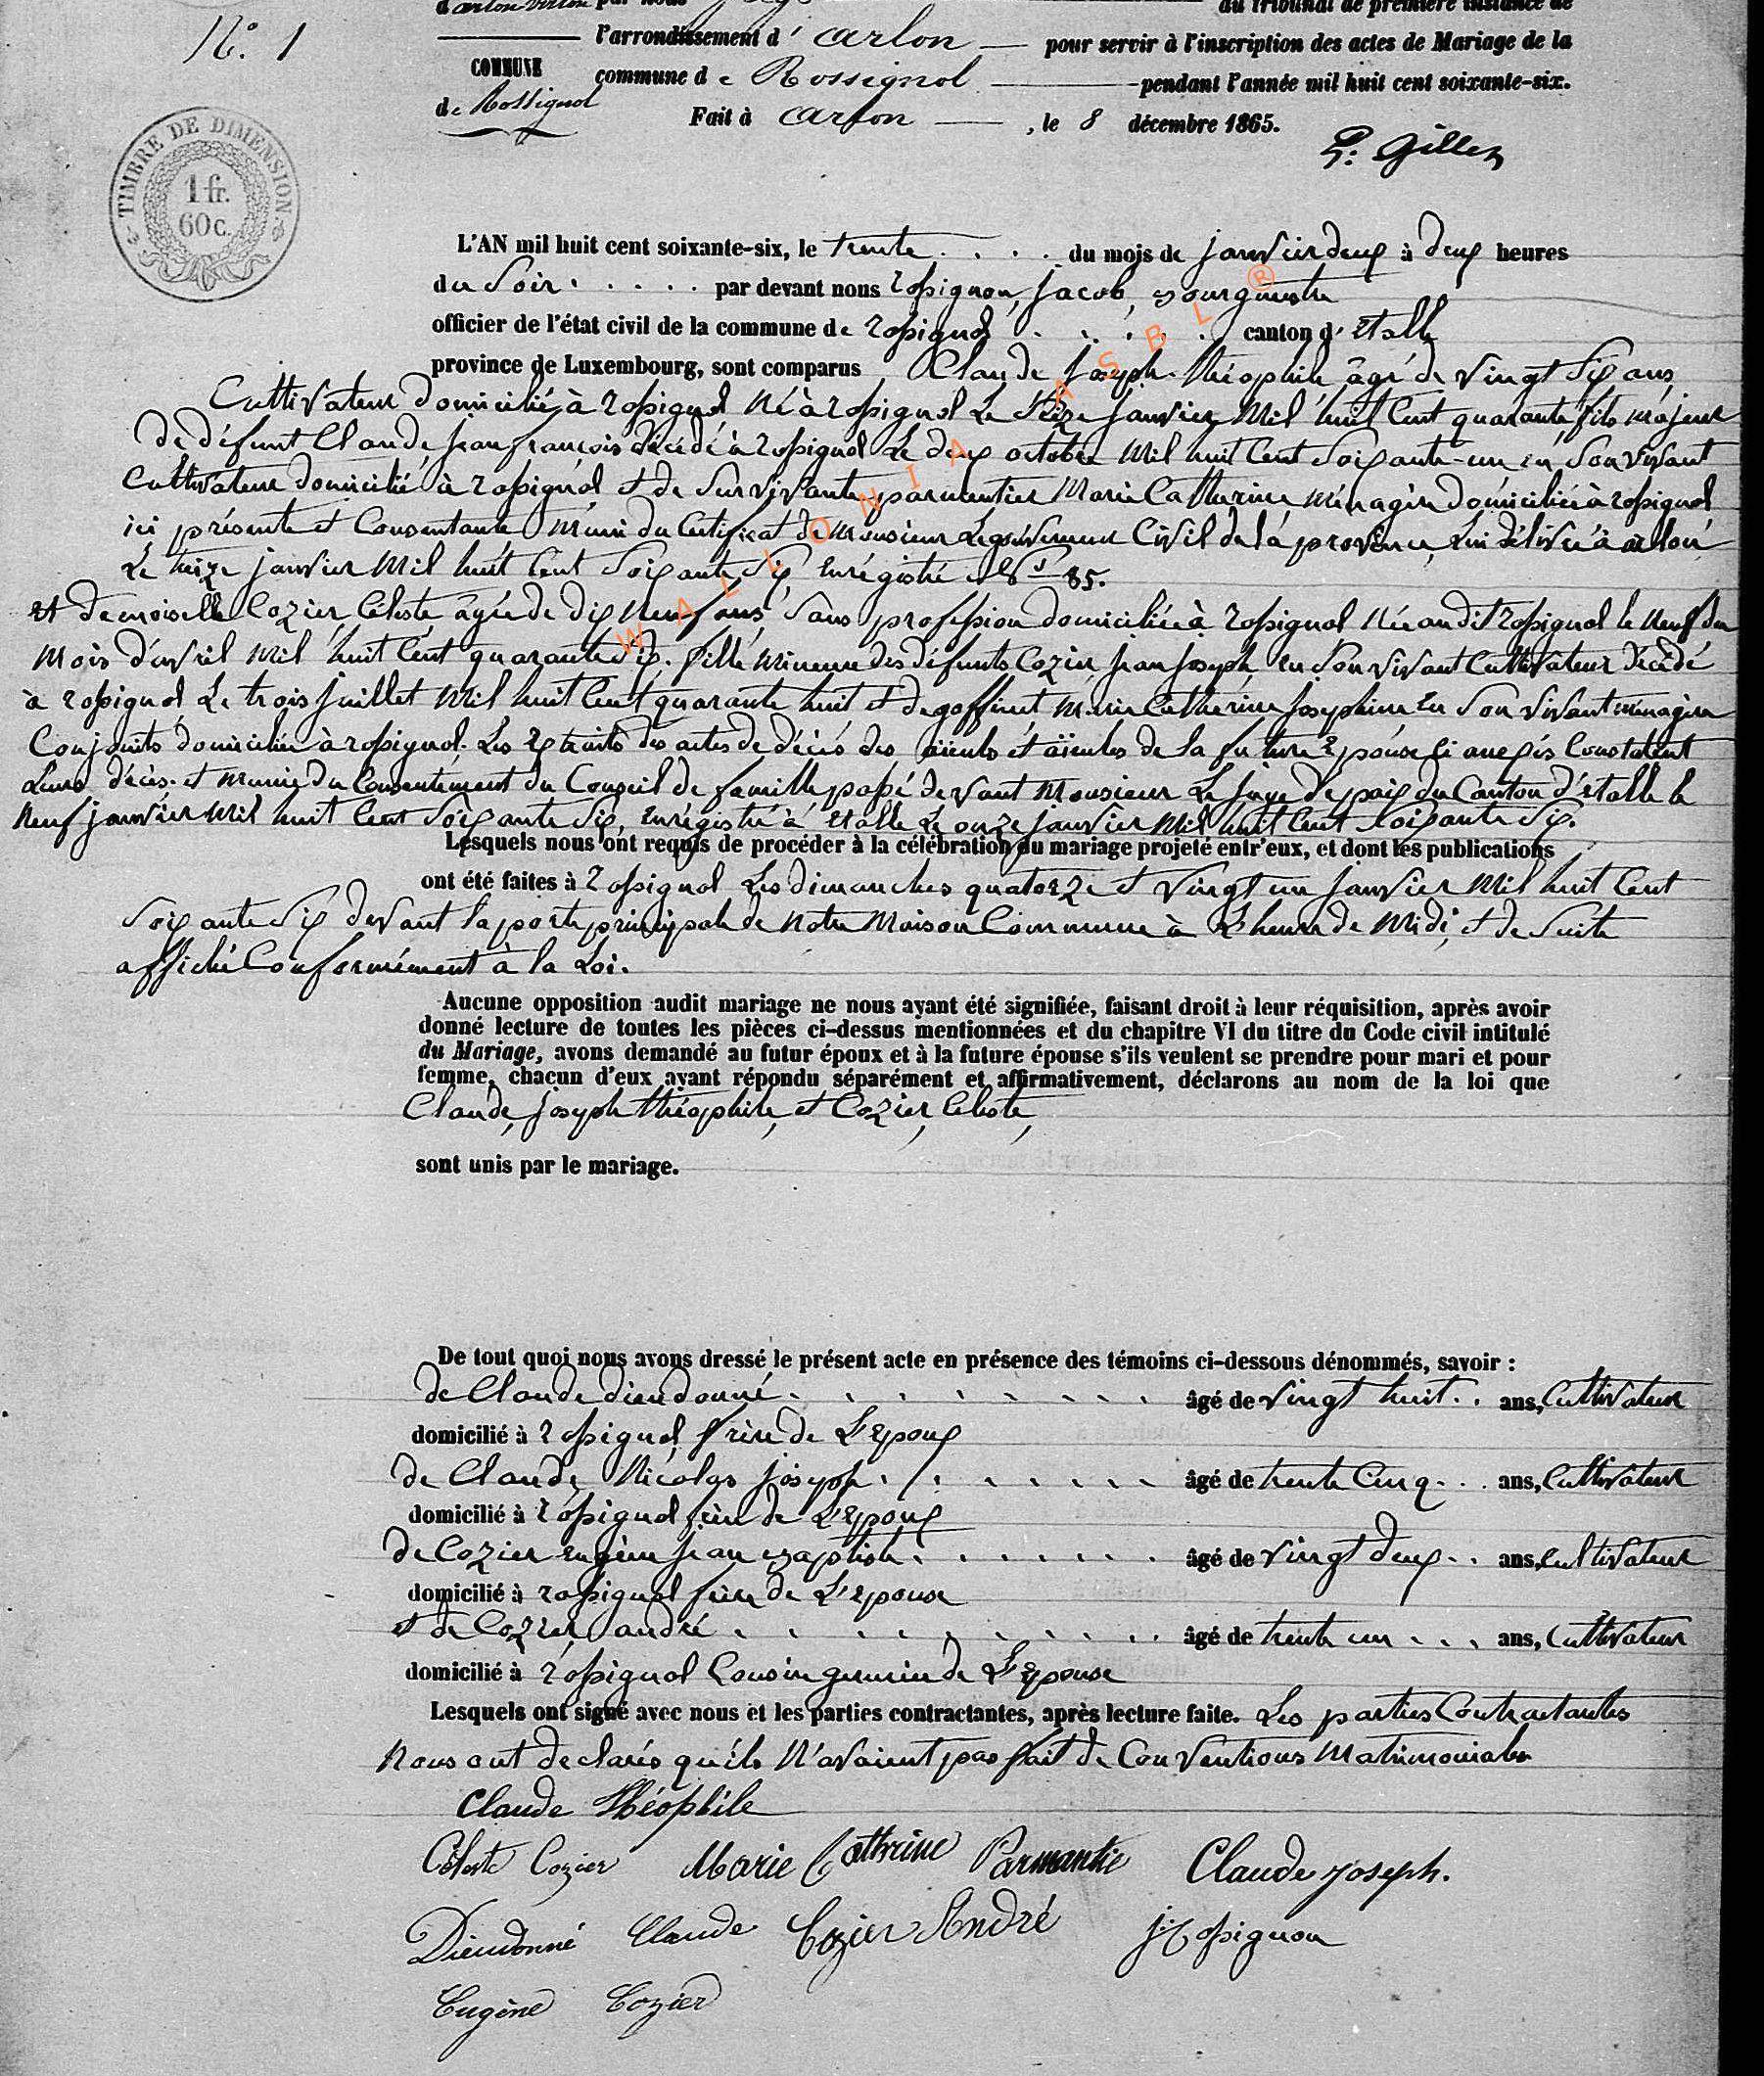 d'arlon Virton par nous juge du tribunal de première instance de
N° 1
l'arrondissement d' arlon pour servir à l'inscription des actes de Mariage de la
COMMUNE
commune de Rossignol pendant l'année mil huit cent soixante-six.
de Rossignol
Fait à arlon, le 8 décembre 1865.
TIMBRE DE DIMENSION
1 fr.
60 c.
L'AN mil huit cent soixante-six, le trente . . . . du mois de janvier deux à deux heures
du Soir . . . . . par devant nous Rossignon, jacob, Bourgmestre
officier de l'état civil de la commune de Rossignol . . . . . canton d' Etalle
province de Luxembourg, sont comparus Claude joseph théophile âgé de vingt Six ans
Cultivateur domicilié à Rossignol Né à Rossignol Le Seize janvier Mil huit Cent quarante, fils majeur
de défunt Claude jean françois décédé à Rossignol Le deux octobre Mil huit Cent Soixante-un en Son vivant
Cultivateur domicilié à Rossignol et de Survivante parmentier Marie Catherine ménagère domiciliée à Rossignol
ici présente et Consentante Muni du Certificat de Monsieur Le gouverneur Civil de la province, Lui délivré à arlon
Le treize janvier Mil huit Cent Soixante Six Enrégistré N° 85.
et demoiselle Cozier Céleste âgée de dix Neuf ans Sans profession domiciliée à Rossignol Née audit Rossignol le Neuf du
Mois d'avril Mil huit Cent quarante Six. fille Mineure des défunts Cozier, jean joseph, en Son vivant Cultivateur décédé
à Rossignol Le trois juillet Mil huit Cent quarante huit et de goffinet Marie Catherine josephine En Son vivant ménagère
Conjoints domiciliés à Rossignol. Les Extraits des actes de décès des aïeuls et aïeules de la future Epouse ci annexés Constatent
Leurs décès. et munie du Consentement du Conseil de famille passé devant Monsieur Le juge de paix du Canton d'Etalle le
Neuf janvier Mil huit Cent Soixante Six, Enrégistré à Etalle Le onze janvier Mil huit Cent Soixante Six.
Lesquels nous ont requis de procéder à la célébration du mariage projeté entr'eux, et dont les publications
ont été faites à Rossignol Les dimanches quatorze et Vingt un janvier Mil huit Cent
Soixante Six devant la porte principale de Notre Maison Commune à L'heure de Midi, et de Suite
affiché Conformément à la Loi.
Aucune opposition audit mariage ne nous ayant été signifiée, faisant droit à leur réquisition, après avoir
donné lecture de toutes les pièces ci-dessus mentionnées et du chapitre VI du titre du Code civil intitulé
du Mariage, avons demandé au futur époux et à la future épouse s'ils veulent se prendre pour mari et pour
femme, chacun d'eux ayant répondu séparément et affirmativement, déclarons au nom de la loi que
Claude, joseph théophile, et Cozier, Céleste,
sont unis par le mariage.
De tout quoi nous avons dressé le présent acte en présence des témoins ci-dessous dénommés, savoir :
de Claude dieudonné . . . . . . . . âgé de Vingt huit . . ans, Cultivateur
domicilié à Rossignol, frère de L'Epoux
de Claude Nicolas joseph . . . . . . . âgé de trente Cinq . . . ans, Cultivateur
domicilié à Rossignol frère de L'Epoux
de Cozier Eugène jean Baptiste . . . . . . âgé de Vingt deux . . ans, Cultivateur
domicilié à Rossignol frère de L'Epouse
et de Cozier andré . . . . . . . . . âgé de trente un . . . ans, Cultivateur
domicilié à Rossignol Cousin germain de L'Epouse
Lesquels ont signé avec nous et les parties contractantes, après lecture faite. Les parties Contractantes
Nous ont declarés qu'ils N'avaient pas fait de Conventions Matrimoniales
Claude Théophile
Céleste Cozier Marie Cathrine Parmantie Claude joseph.
Dieudonné Claude Cozier André J. Rossignon
Eugène Cozier
WALLONIA ASBL ®